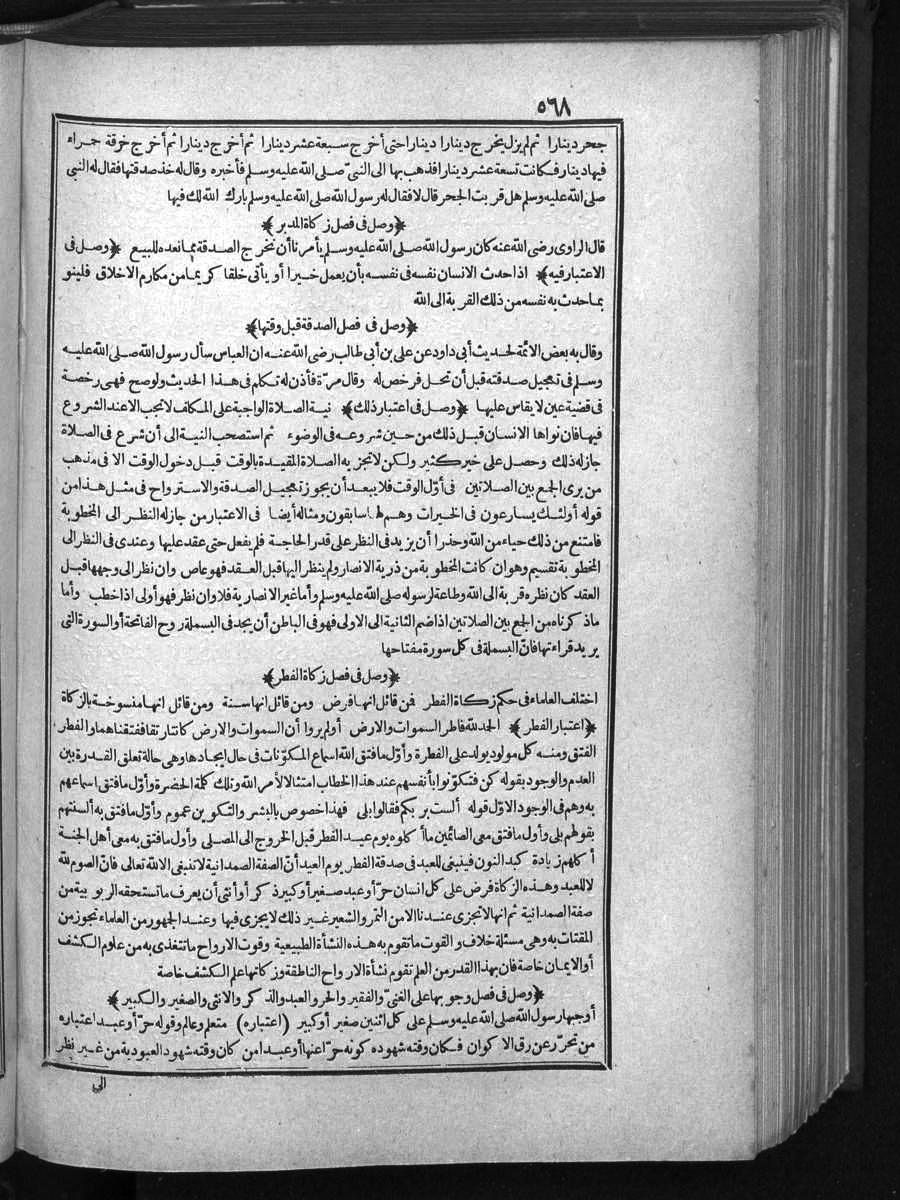 ٥٦٨
جحر دينارا ثم لم يزل يخرج دينارا دينارا حتى أخرج سبعة عشر دينارا ثم أخرج دينارا ثم أخرج خرقة حمراء
فيها دينار فكانت تسعة عشر دينارا فذهب بها الى النبي صلى الله عليه وسلم فأخبره وقال له خذ صدقتها فقال له النبي
صلى الله عليه وسلم هل قربت الجحر قال لا فقال له رسول الله صلى الله عليه وسلم بارك الله لك فيها
﴿وصل فى فصل زكاة المدبر﴾
قال الراوى رضى الله عنه كان رسول الله صلى الله عليه وسلم يأمرنا أن نخرج الصدقة مما نعده للبيع ﴿وصل فى
الاعتبار فيه﴾ اذا حدث الانسان نفسه فى نفسه بأن يعمل خيرا أو يأتى خلقا كريما من مكارم الاخلاق فلينو
بما حدث به نفسه من ذلك القربة الى الله
﴿وصل فى فصل الصدقة قبل وقتها﴾
وقال به بعض الائمة لحديث أبى داود عن على بن أبى طالب رضى الله عنه ان العباس سأل رسول الله صلى الله عليه
وسلم فى تعجيل صدقته قبل أن تحل فرخص له وقال مرّة فأذن له تكلم فى هذا الحديث ولو صح فهى رخصة
فى قضية عين لا يقاس عليها ﴿وصل فى اعتبار ذلك﴾ نية الصلاة الواجبة على المكلف لا تجب الا عند الشروع
فيها فان نواها الانسان قبل ذلك من حين شروعه فى الوضوء ثم استصحب النية الى أن شرع فى الصلاة
جاز له ذلك وحصل على خير كثير ولكن لا تجزيه الصلاة المقيدة بالوقت قبل دخول الوقت الا فى مذهب
من يرى الجمع بين الصلاتين فى أوّل الوقت فلا يبعد أن يجوز تعجيل الصدقة والاسترواح فى مثل هذا من
قوله أولئك يسارعون فى الخيرات وهم لها سابقون ومثاله أيضا فى الاعتبار من جاز له النظر الى المخطوبة
فامتنع من ذلك حياء من الله وحذرا أن يزيد فى النظر على قدر الحاجة فلم يفعل حتى عقد عليها وعندى فى النظر الى
المخطوبة تقسيم وهو ان كانت المخطوبة من ذرية الانصار ولم ينظر اليها قبل العقد فهو عاص وان نظر الى وجهها قبل
العقد كان نظره قربة الى الله وطاعة لرسوله صلى الله عليه وسلم وأما غير الانصارية فلا وان نظر فهو أولى اذا خطب وأما
ما ذكرناه من الجمع بين الصلاتين اذا ضم الثانية الى الاولى فهو فى الباطن أن يجد فى البسملة روح الفاتحة أو السورة التى
يريد قراءتها فانّ البسملة فى كل سورة مفتاحها
﴿وصل فى فصل زكاة الفطر﴾
اختلف العلماء فى حكم زكاة الفطر فمن قائل انها فرض ومن قائل انها سنة ومن قائل انها منسوخة بالزكاة
﴿اعتبار الفطر﴾ الحمد لله فاطر السموات والارض أولم يروا أن السموات والارض كانتا رتقا ففتقناهما والفطر
الفتق ومنه كل مولود يولد على الفطرة وأوّل ما فتق الله اسماع المكوّنات فى حال ايجادها وهى حالة تعلق القدرة بين
العدم والوجود بقوله كن فتكوّنوا بأنفسهم عند هذا الخطاب امتثالا لأمر الله وتلك كلمة الحضرة وأوّل ما فتق اسماعهم
به وهم فى الوجود الاوّل قوله ألست بربكم فقالوا بلى فهذا خصوص بالبشر والتكوين عموم وأوّل ما فتق به ألسنتهم
بقولهم بلى وأول ما فتق معى الصائمين ما أكلوه يوم عيد الفطر قبل الخروج الى المصلى وأول ما فتق به معى أهل الجنة
أكلهم زيادة كبد النون فينبغى للعبد فى صدقة الفطر يوم العيد أنّ الصفة الصمدانية لا تنبغى الا لله تعالى فانّ الصوم لله
لا للعبد وهذه الزكاة فرض على كل انسان حرّ أو عبد صغير أو كبير ذكر أو أنثى أن يعرف ما تستحقه الربوبية من
صفة الصمدانية ثم انها لا تجزى عندنا الا من التمر والشعير غير ذلك لا يجزى فيها وعند الجمهور من العلماء تجوز من
المقتات به وهى مسئلة خلاف والقوت ما تقوم به هذه النشأة الطبيعية وقوت الارواح ما تتغذى به من علوم الكشف
أو الايمان خاصة فان بهذا القدر من العلم تقوم نشأة الارواح الناطقة وزكاتها علم الكشف خاصة
﴿وصل فى فصل وجوبها على الغنىّ والفقير والحر والعبد والذكر والانثى والصغير والكبير﴾
أوجبها رسول الله صلى الله عليه وسلم على كل اثنين صغير أو كبير (اعتباره) متعلم وعالم وقوله حرّ أو عبد اعتباره
من تحرّر عن رق الاكوان فكان وقته شهوده كونه حرّا عنها أو عبدا من كان وقته شهود العبودية من غير نظر
الى